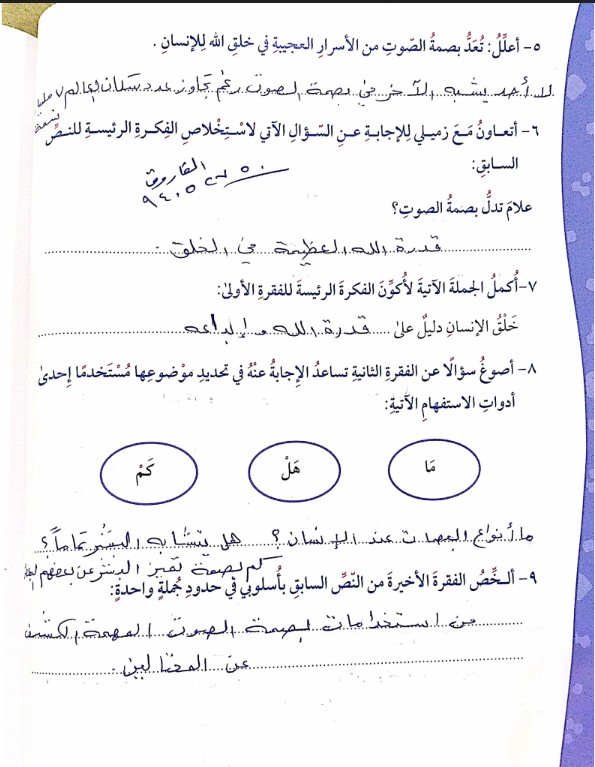 ٥- أعلِّلُ: تُعَدُّ بصمةُ الصّوتِ من الأسرارِ العجيبةِ في خلقِ اللهِ لِلإنسانِ .
لا أحد يشبه الآخر في بصمة الصوت رغم تجاوز عدد سكان العالم ٧ مليار
نسمة
٦- أتعاونُ مَعَ زميلي لِلإجابةِ عنِ السّؤالِ الآتي لاسْتِخْلاصِ الفِكرةِ الرئيسةِ للنصِّ
السابقِ:
الفاروق
٩٤٠٥٢٧٥٠
علامَ تدلُّ بصمةُ الصوتِ؟
قدرة الله العظيمة في الخلق .
٧-أُكملُ الجملةَ الآتيةَ لأُكوِّنَ الفكرةَ الرئيسةَ للفقرةِ الأولىٰ:
خَلْقُ الإنسانِ دليلٌ علىٰ قدرة الله وإبداعه
٨- أصوغُ سؤالًا عن الفقرةِ الثانيةِ تساعدُ الإجابةُ عنْهُ في تحديدِ موْضوعِها مُسْتَخدمًا إحدىٰ
أدواتِ الاستفهامِ الآتيةِ:
مَا
هَلْ
كَمْ
ما أنواع البصمات عند الإنسان ؟ هل يتشابه البشر تماماً ؟
كم بصمة تميز البشر عن بعضهم
٩- ألخِّصُ الفقرةَ الأخيرةَ من النّصِّ السابقِ بأُسلوبي في حدودِ جُملةٍ واحدةٍ:
من استخدامات بصمة الصوت المهمة الكشف
عن المحتالين .